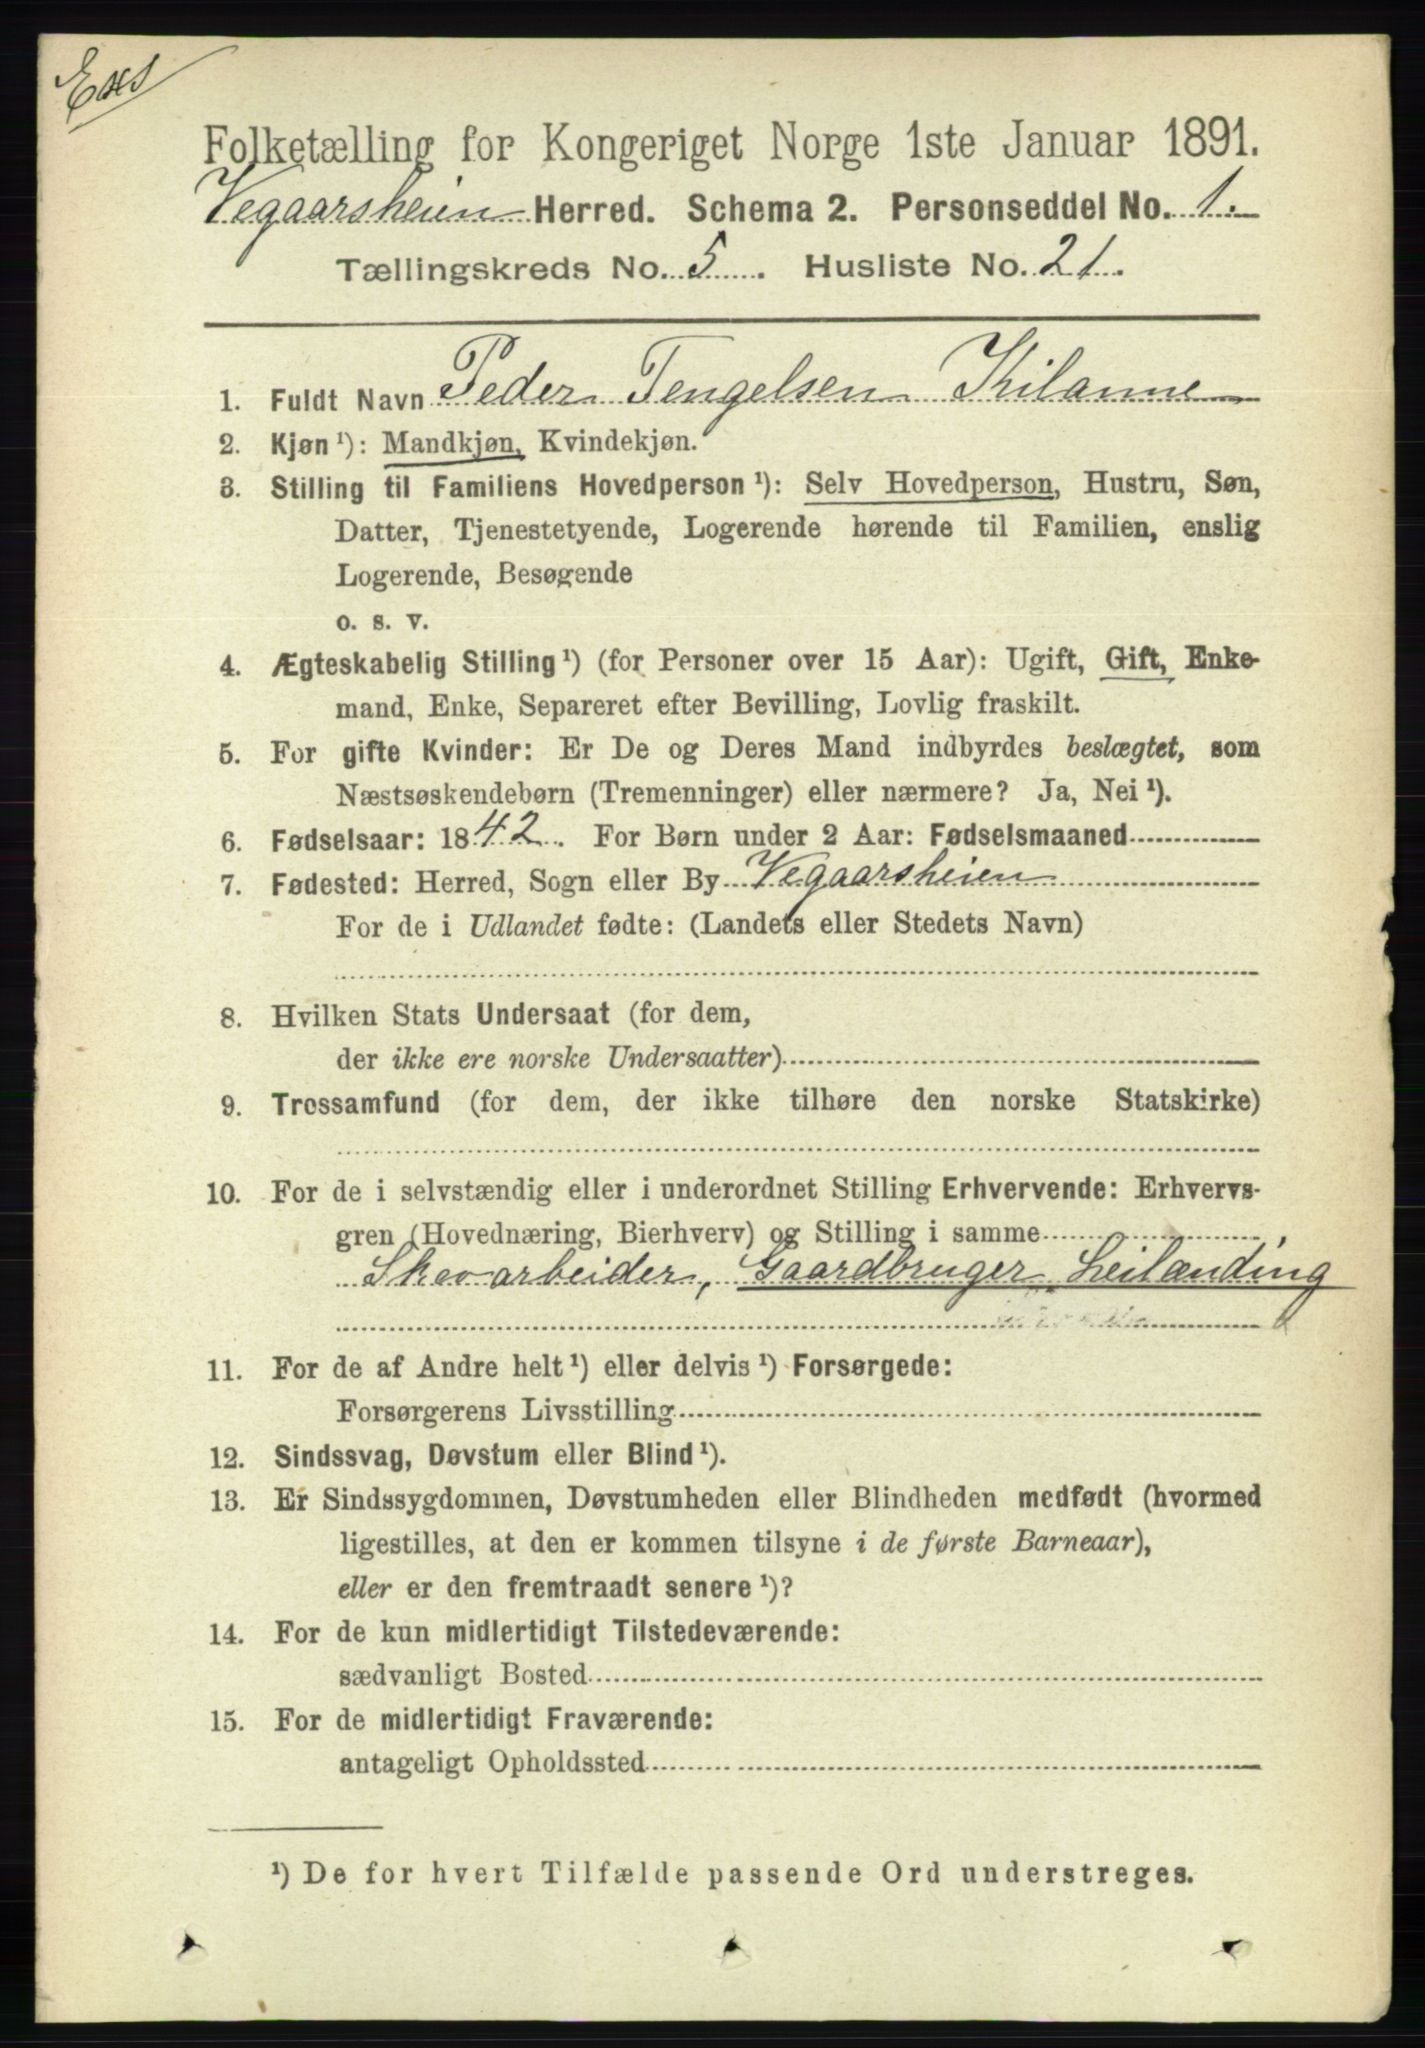 Folketælling for Kongeriget Norge 1ste Januar 1891.
Vegaarsheien Herred. Schema 2. Personseddel No. 1.
Tællingskreds No. 5. Husliste No. 21.
1. Fuldt Navn Peder Tengelsen Kilanne
2. Kjøn ¹): Mandkjøn, Kvindekjøn.
3. Stilling til Familiens Hovedperson ¹): Selv Hovedperson, Hustru, Søn,
Datter, Tjenestetyende, Logerende hørende til Familien, enslig
Logerende, Besøgende
o. s. v.
4. Ægteskabelig Stilling ¹) (for Personer over 15 Aar): Ugift, Gift, Enke-
mand, Enke, Separeret efter Bevilling, Lovlig fraskilt.
5. For gifte Kvinder: Er De og Deres Mand indbyrdes beslægtet, som
Næstsøskendebørn (Tremenninger) eller nærmere? Ja, Nei ¹).
6. Fødselsaar: 1842. For Børn under 2 Aar: Fødselsmaaned
7. Fødested: Herred, Sogn eller By Vegaarsheien
For de i Udlandet fødte: (Landets eller Stedets Navn)
8. Hvilken Stats Undersaat (for dem,
der ikke ere norske Undersaatter)
9. Trossamfund (for dem, der ikke tilhøre den norske Statskirke)
10. For de i selvstændig eller i underordnet Stilling Erhvervende: Erhvervs-
gren (Hovednæring, Bierhverv) og Stilling i samme
Skovarbeider, Gaardbruger, Leilænding
11. For de af Andre helt ¹) eller delvis ¹) Forsørgede:
Forsørgerens Livsstilling
12. Sindssvag, Døvstum eller Blind ¹).
13. Er Sindssygdommen, Døvstumheden eller Blindheden medfødt (hvormed
ligestilles, at den er kommen tilsyne i de første Barneaar),
eller er den fremtraadt senere ¹)?
14. For de kun midlertidigt Tilstedeværende:
sædvanligt Bosted
15. For de midlertidigt Fraværende:
antageligt Opholdssted
¹) De for hvert Tilfælde passende Ord understreges.